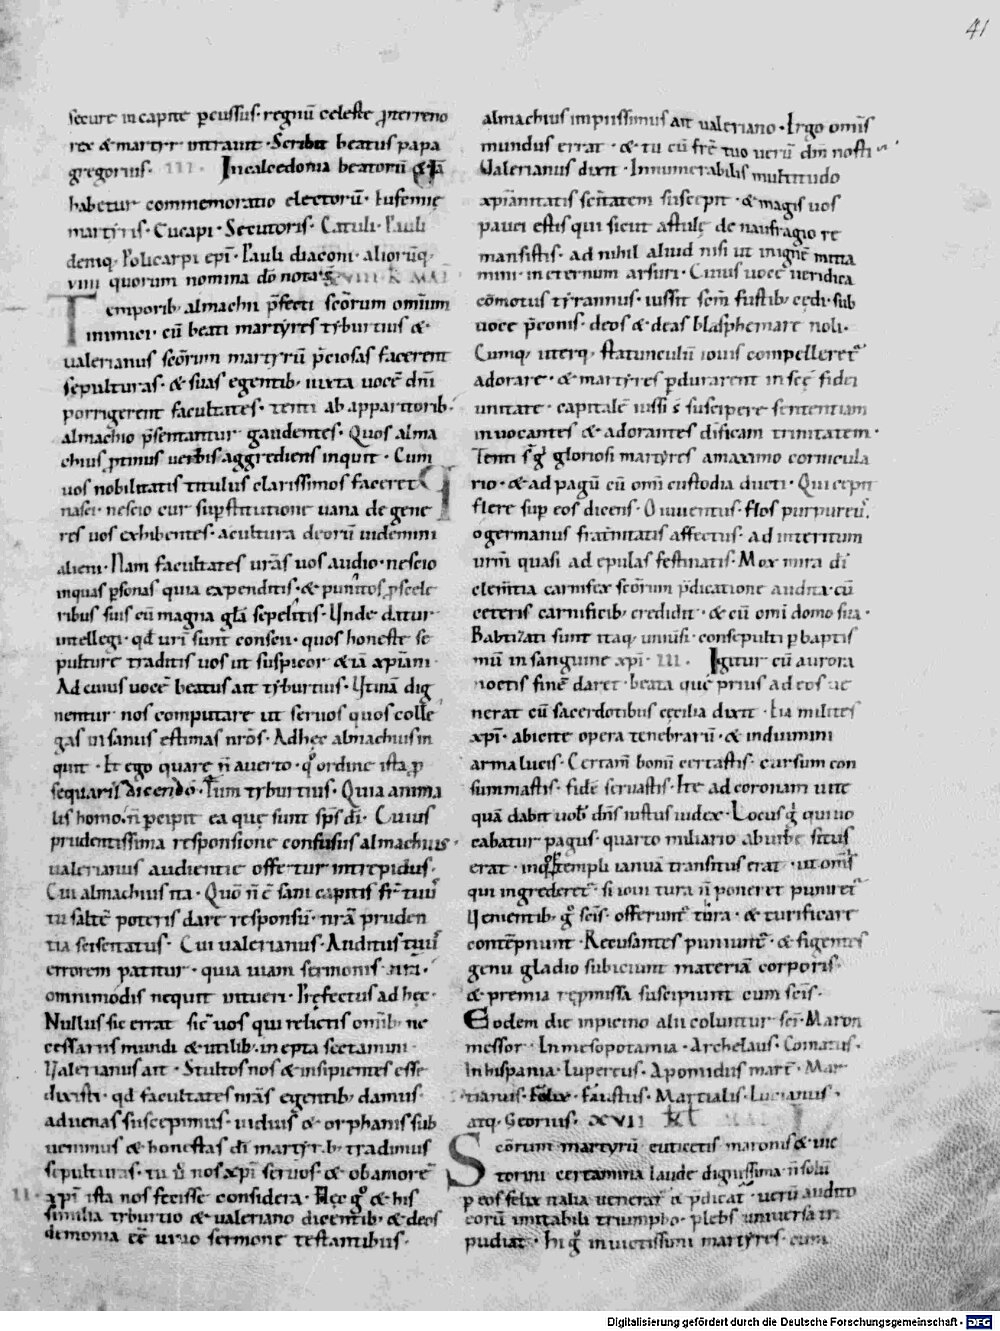 41
secure in capite p̄cussus· regnū celeste p̄terreno
rex & martyr intrauit· Scribit beatus papa
gregorius· III· In calcedonia beatorū &iā
habetur commemoratio electorū· Eufemię
martyris· Cucapi· Secutoris· Catuli· Pauli
deniq, Policarpi ep̄i· Pauli diaconi· aliorūq,
viiii quorum nomina dō nota s̄· XVIII K MAI
Temporib, almachii p̄fecti sc̄orum omnium
inimici· cū beati martyres tyburtius &
valerianus sc̄orum martyrū p̄ciosas facerent
sepulturas· & suas egentib, iuxta uocē dn̄i
porrigerent facultates· tenti ab apparitorib,
almachio p̄sentantur gaudentes· Quos alma
chius p̄timus uerbis aggrediens inquit· Cum
uos nobilitatis titulus clarissimos faceret
nasci· nescio cur sup̄stitutione uana de gene
res uos exhibentes· a cultura deorū uidemini
alieni· Nam facultates ur̄as uos audio· nescio
inquas p̄sonas quia expenditis· & punitos p̄scele
ribus suis cū magna gl̄a sepelitis· Unde datur
intellegi· qd̄ uri sunt conscii· quos honeste se
pulture traditis uos ut suspicor &iā xp̄iani·
Ad cuius uocē beatus ait tyburtius· Utinā dig
nentur nos computare ut seruos quos colle
gas insanus estimas nr̄os· Ad hęc almachius in
quit· Et ego quare n̄ auerto· qͦ ordine ista p̄
sequaris dicendo· Tum tyburtius· Quia anima
lis homo n̄ p̄cipit ea quę sunt sp̄s dī· Cuius
prudentissima responsione confusus almachius·
ualerianus audientie offertur intrepidus·
Cui almachius ita· Quō n̄ ē sani capitis fr̄ tuus
tu saltē poteris dare responsū· nr̄a pruden
tia sciscitatus· Cui ualerianus· Auditus tuus
errorem patitur· quia uiam sermonis nr̄i·
omnimodis nequit intueri· Pręfectus ad hęc·
Nullus sic errat sic uos qui relictis omīb, ne
cessariis mundi & utilib, inepta sectamini·
Valerianus ait· Stultos nos & insipientes esse
dixisti· qd̄ facultates nr̄as egentib, damus·
aduenas suscepimus· uiduis & orphanis sub
uenimus & honestas dī martyrib, tradimus
sepulturas· tu ū nos xp̄i seruos & ob amorē
xp̄i ista nos fecisse considera· Hęc gͦ & his
similia tyburtio & ualeriano dicentib, & deos
demonia eē uiuo sermone testantibus·
almachius impiissimus ait ualeriano· Ergo omīs
mundus errat· & tu cū fr̄e tuo uerū dm̄ nosti
Valerianus dixit· Innumerabilis multitudo
xp̄ianitatis sc̄itatem suscepit· & magis uos
pauci estis qui sicut astulę de naufragio re
mansistis· ad nihil aliud nisi ut in ignē mitta
mini· in eternum arsuri· Cuius uocē ueridica
cōmotus tyrannus· iussit sc̄m fustib, cędi· sub
uoce p̄conis· deos & deas blasphemare noli·
Cumq, uterq, statunculū iouis compelleret
adorare· & martyres p̄durarent in sc̄ę fidei
unitate· capitalē iussi s̄ suscipere sententiam
inuocantes & adorantes dificam trinitatem·
Tenti s̄ gͦ gloriosi martyres a maximo cornicula
rio· & ad pagū cū om̄i custodia ducti· Qui cępit
flere sup̄ eos dicens· O iuuentus· flos purpureus·
o germanus fraternitatis affectus· ad interitum
urm̄ quasi ad epulas festinatis· Mox mira dī
clem̄tia carnifex sc̄orum p̄dicatione audita· cū
ceteris carnificib, credidit· & cū om̄i domo sua·
Babtizati sunt itaq, uniusi· consepulti p̄ baptis
mū in sanguine xp̄i· III· Igitur cū aurora
noctis finē daret· beata quę prius ad eos ue
nerat cū sacerdotibus cecilia dixit· Eia milites
xp̄i· abicite opera tenebrarū· & induimini
arma lucis· Certam̄ bonū certastis· cursum con
summastis· fidē seruastis· Ite ad coronam uite
quā dabit uob̄ dn̄s iustus iudex· Locus gͦ qui uo
cabatur pagus· quarto miliario ab urbe situs
erat· in quo templi ianuā transitus erat· ut om̄s
qui ingrederet· si ioui tura n̄ poneret puniret
Venientib, gͦ sc̄is· offerunt tura· & turificare
contēpnunt· Recusantes puniunt· & figentes
genu gladio subiciunt materiā corporis·
& premia repmissa suscipiunt cum sc̄is·
Eodem die in piceno alii coluntur sc̄i· Maron
messor· In mesopotamia· Archelaus· Comatus·
In hispania· Lupercus· Apomidus mart̄· Mar
tianus· Felix· faustus· Martialis· Lucianus·
atq, Georius· XVII Kl MAI
Sc̄orum martyrū euticetis maronis & uic
torini certamina laude dignissima n̄ solū
p̄ eos felix italia uenerat & p̄dicat· uerū audito
eorū imitabili triumpho· plebs uniuersa tri
pudiat· Hi gͦ inuictissimi martyres· cum
II·
Digitalisierung gefördert durch die Deutsche Forschungsgemeinschaft - DFG